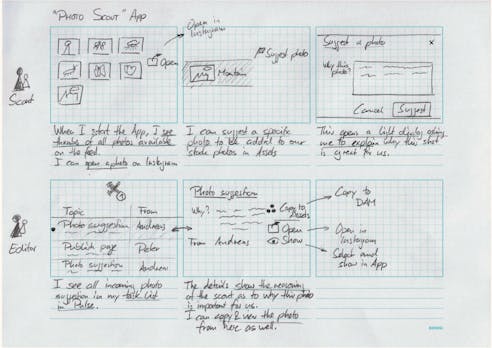 "Photo Scout" App
Open in
Instagram
Open
Suggest photo
Mountain
Suggest a photo
x
Why this
photo?
Cancel
Suggest
Scout
When I start the App, I see
thumbs of all photos available
on the feed.
I can open a photo on Instagram
I can suggest a specific
photo to be added to our
stock photos in Assets
This opens a light display asking
me to explain why this shot
is great for us.
Topic
From
Photo suggestion
Andreas
Publish page
Peter
Photo suggestion
Andreas
Photo suggestion
Why?
From Andreas
Copy to
Assets
Open
Show
Copy to
DAM
Open in
Instagram
Select and
show in App
Editor
I see all incoming photo
suggestion in my task list
in Pulse.
The details show the reasoning
of the scout as to why this photo
is important for us.
I can copy & view the photo
from here as well.